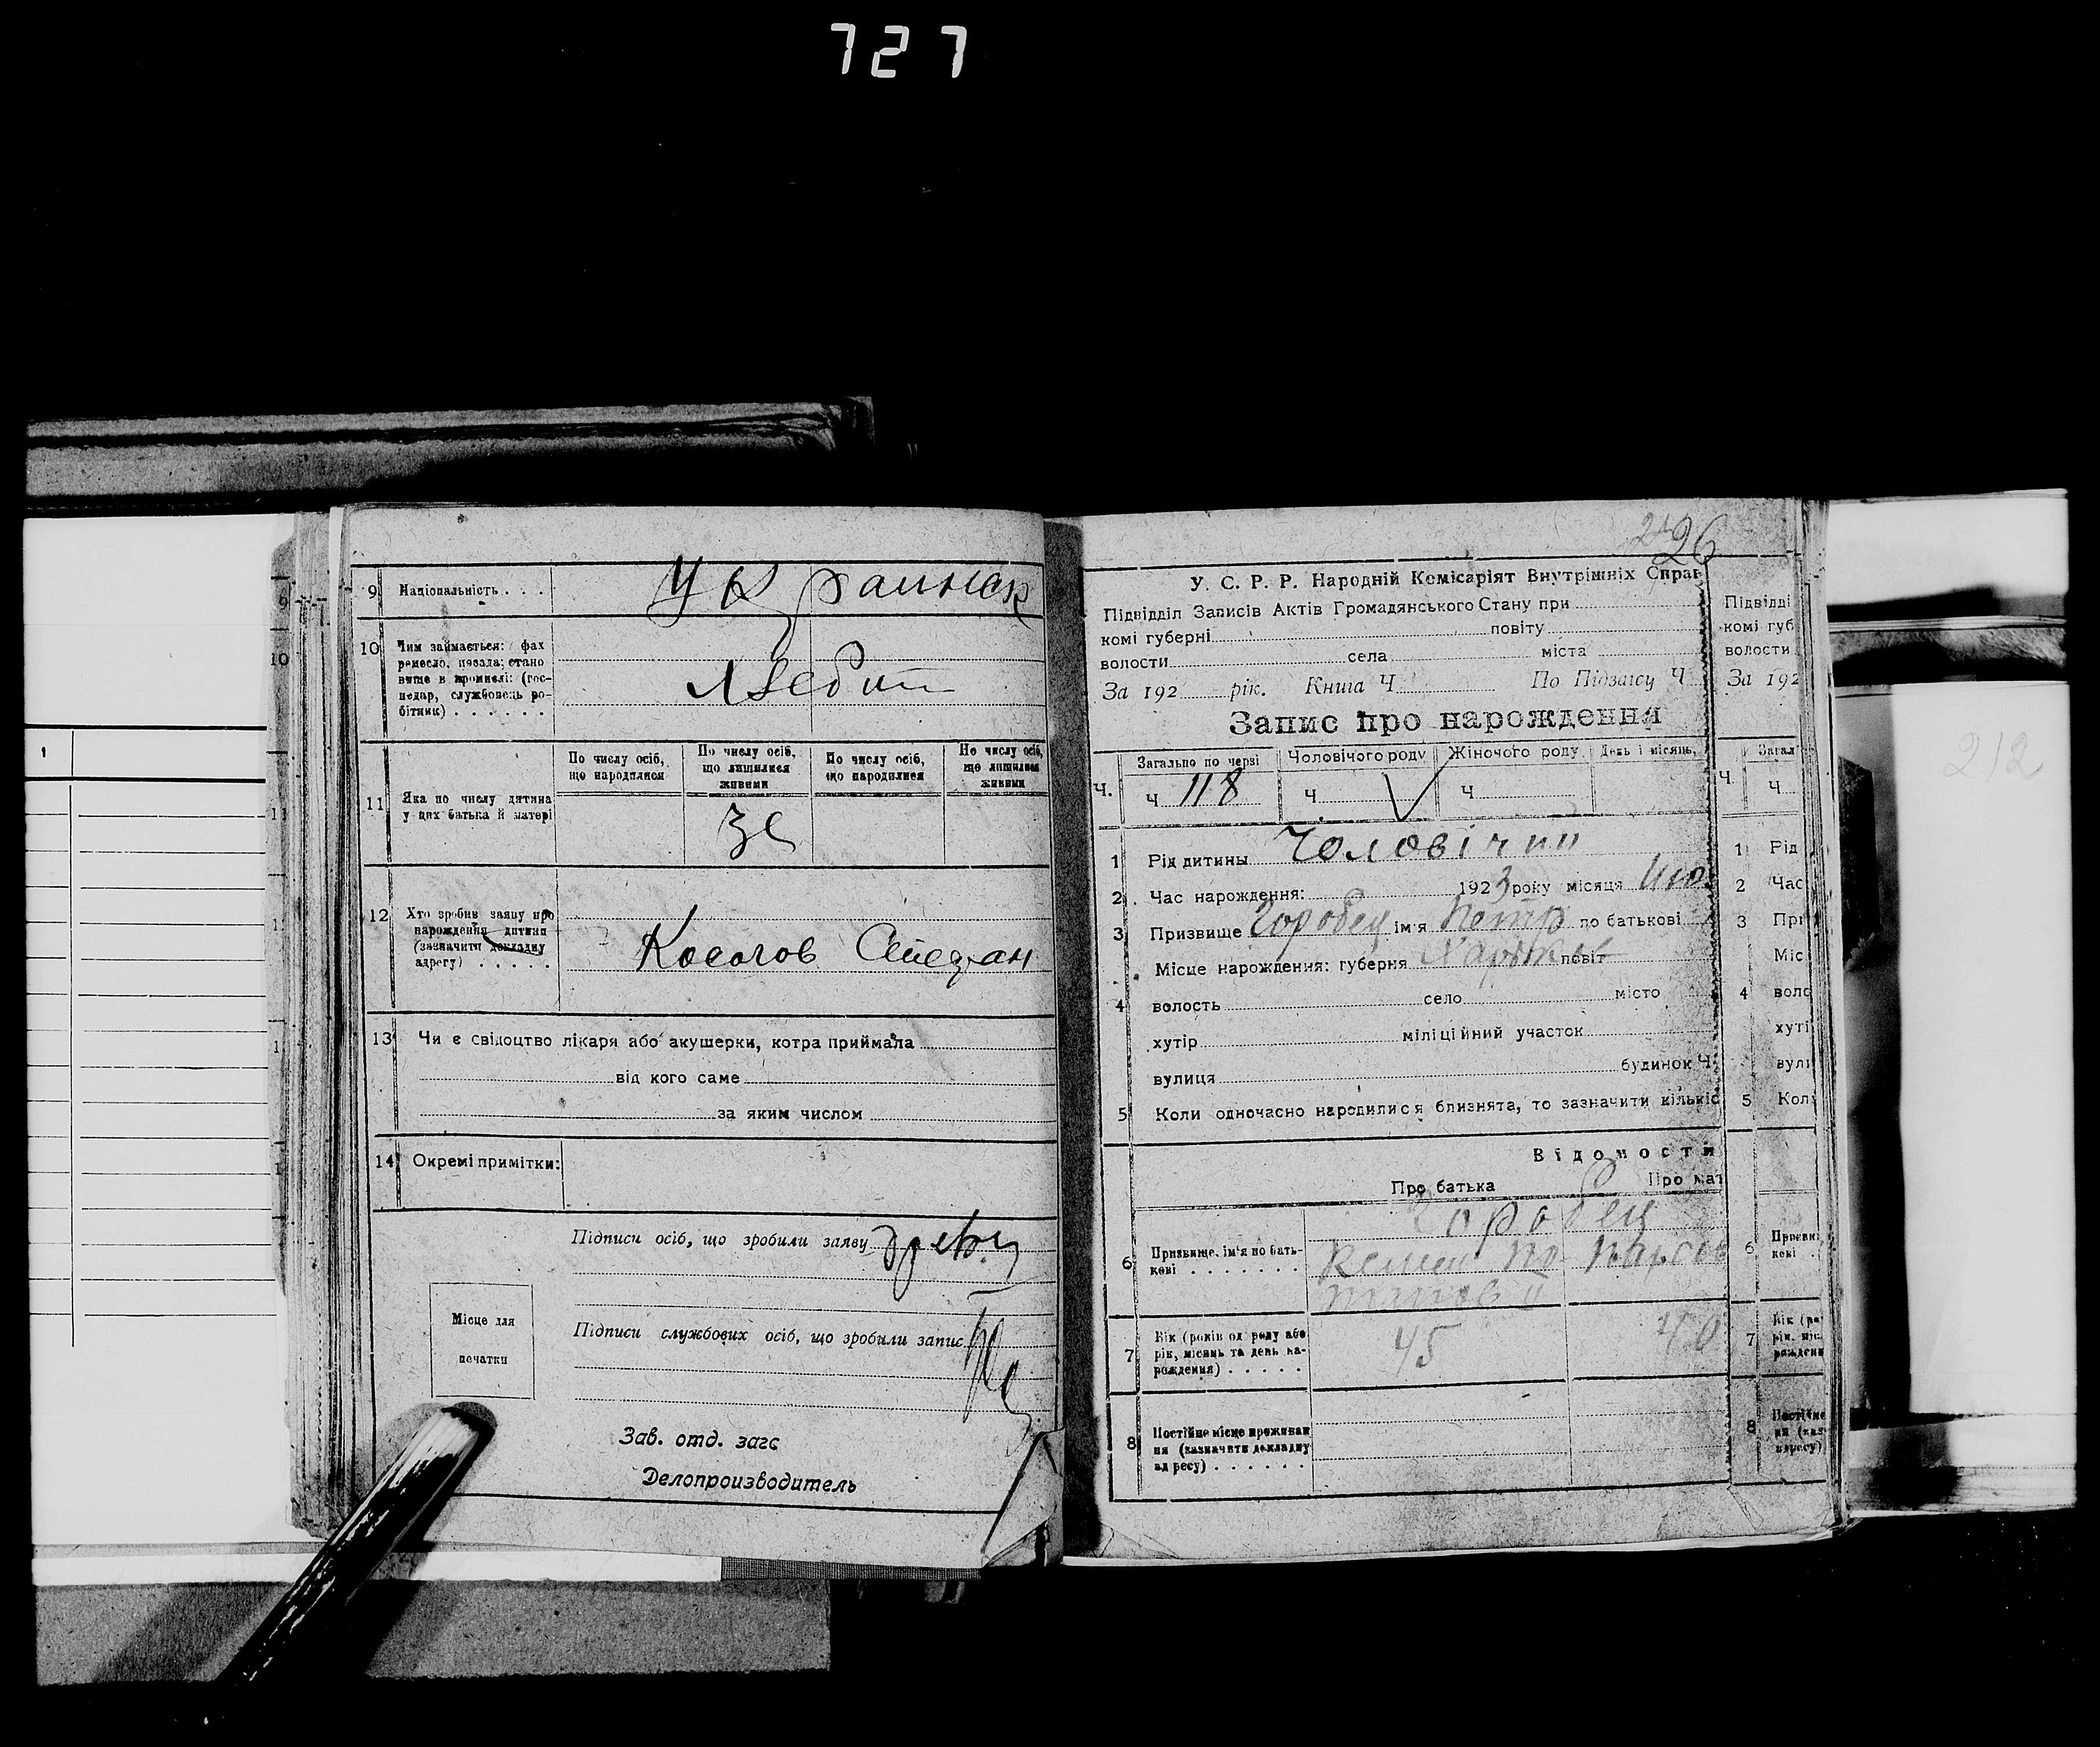 727
9 Національність . . .
Украинец
10 Чим займається: фах
ремесло, посада; стано
вище в промислі: (гос-
подар, службовець ро-
бітник) . . . . . .
11 Яка по числу дитина
у цих батька й матері
По числу осіб,
що народилися
По числу осіб,
що лишилися
живими
По числу осіб,
що народилися
По числу осіб,
що лишилися
живими
12 Хто зробив заяву про
нарождення дитини
(зазначити докладну
адресу) . . . . .
Косогов Стефан
13 Чи є свідоцтво лікаря або акушерки, котра приймала
від кого саме
за яким числом
14 Окремі примітки:
Підписи осіб, що зробили заяву
Місце для
печатки
Підписи службових осіб, що зробили запис
Зав. отд. загс
Делопроизводитель
26
У. С. Р. Р. Народній Комісаріят Внутрішніх Справ
Підвідділ Записів Актів Громадянського Стану при
комі губерні повіту
волости села міста
За 192 рік. Книга Ч По Підзагсу Ч
Запис про нарождення
Ч. Загально по черзі Чоловічого роду Жіночого роду День і місяць,
Ч 118 Ч Ч
1 Рід дитини Чоловічий
2 Час нарождення: 1923 року місяця Ию
3 Призвище Горобец ім'я Петр по батькові
4 Місце нарождення: губерня Харьков повіт
волость село місто
хутір міліційний участок
вулиця будинок Ч
5 Коли одночасно народилися близнята, то зазначити кількіс
Відомости
Про батька Про мат
Горобец
6 Призвище, ім'я по бать-
кові . . . . . . .
7 Вік (років од роду або
рік, місяць та день на-
рождення) . . . . .
45 40
8 Постійне місце проживан
ня (зазначити докладну
адресу) . . . . . .
Підвідді
комі губ
волости
За 192
Загал
Ч. Ч
1 Рід
2 Час
3 Пр
Міс
4 воло
хуті
вули
5 Кол
6
7
8
212